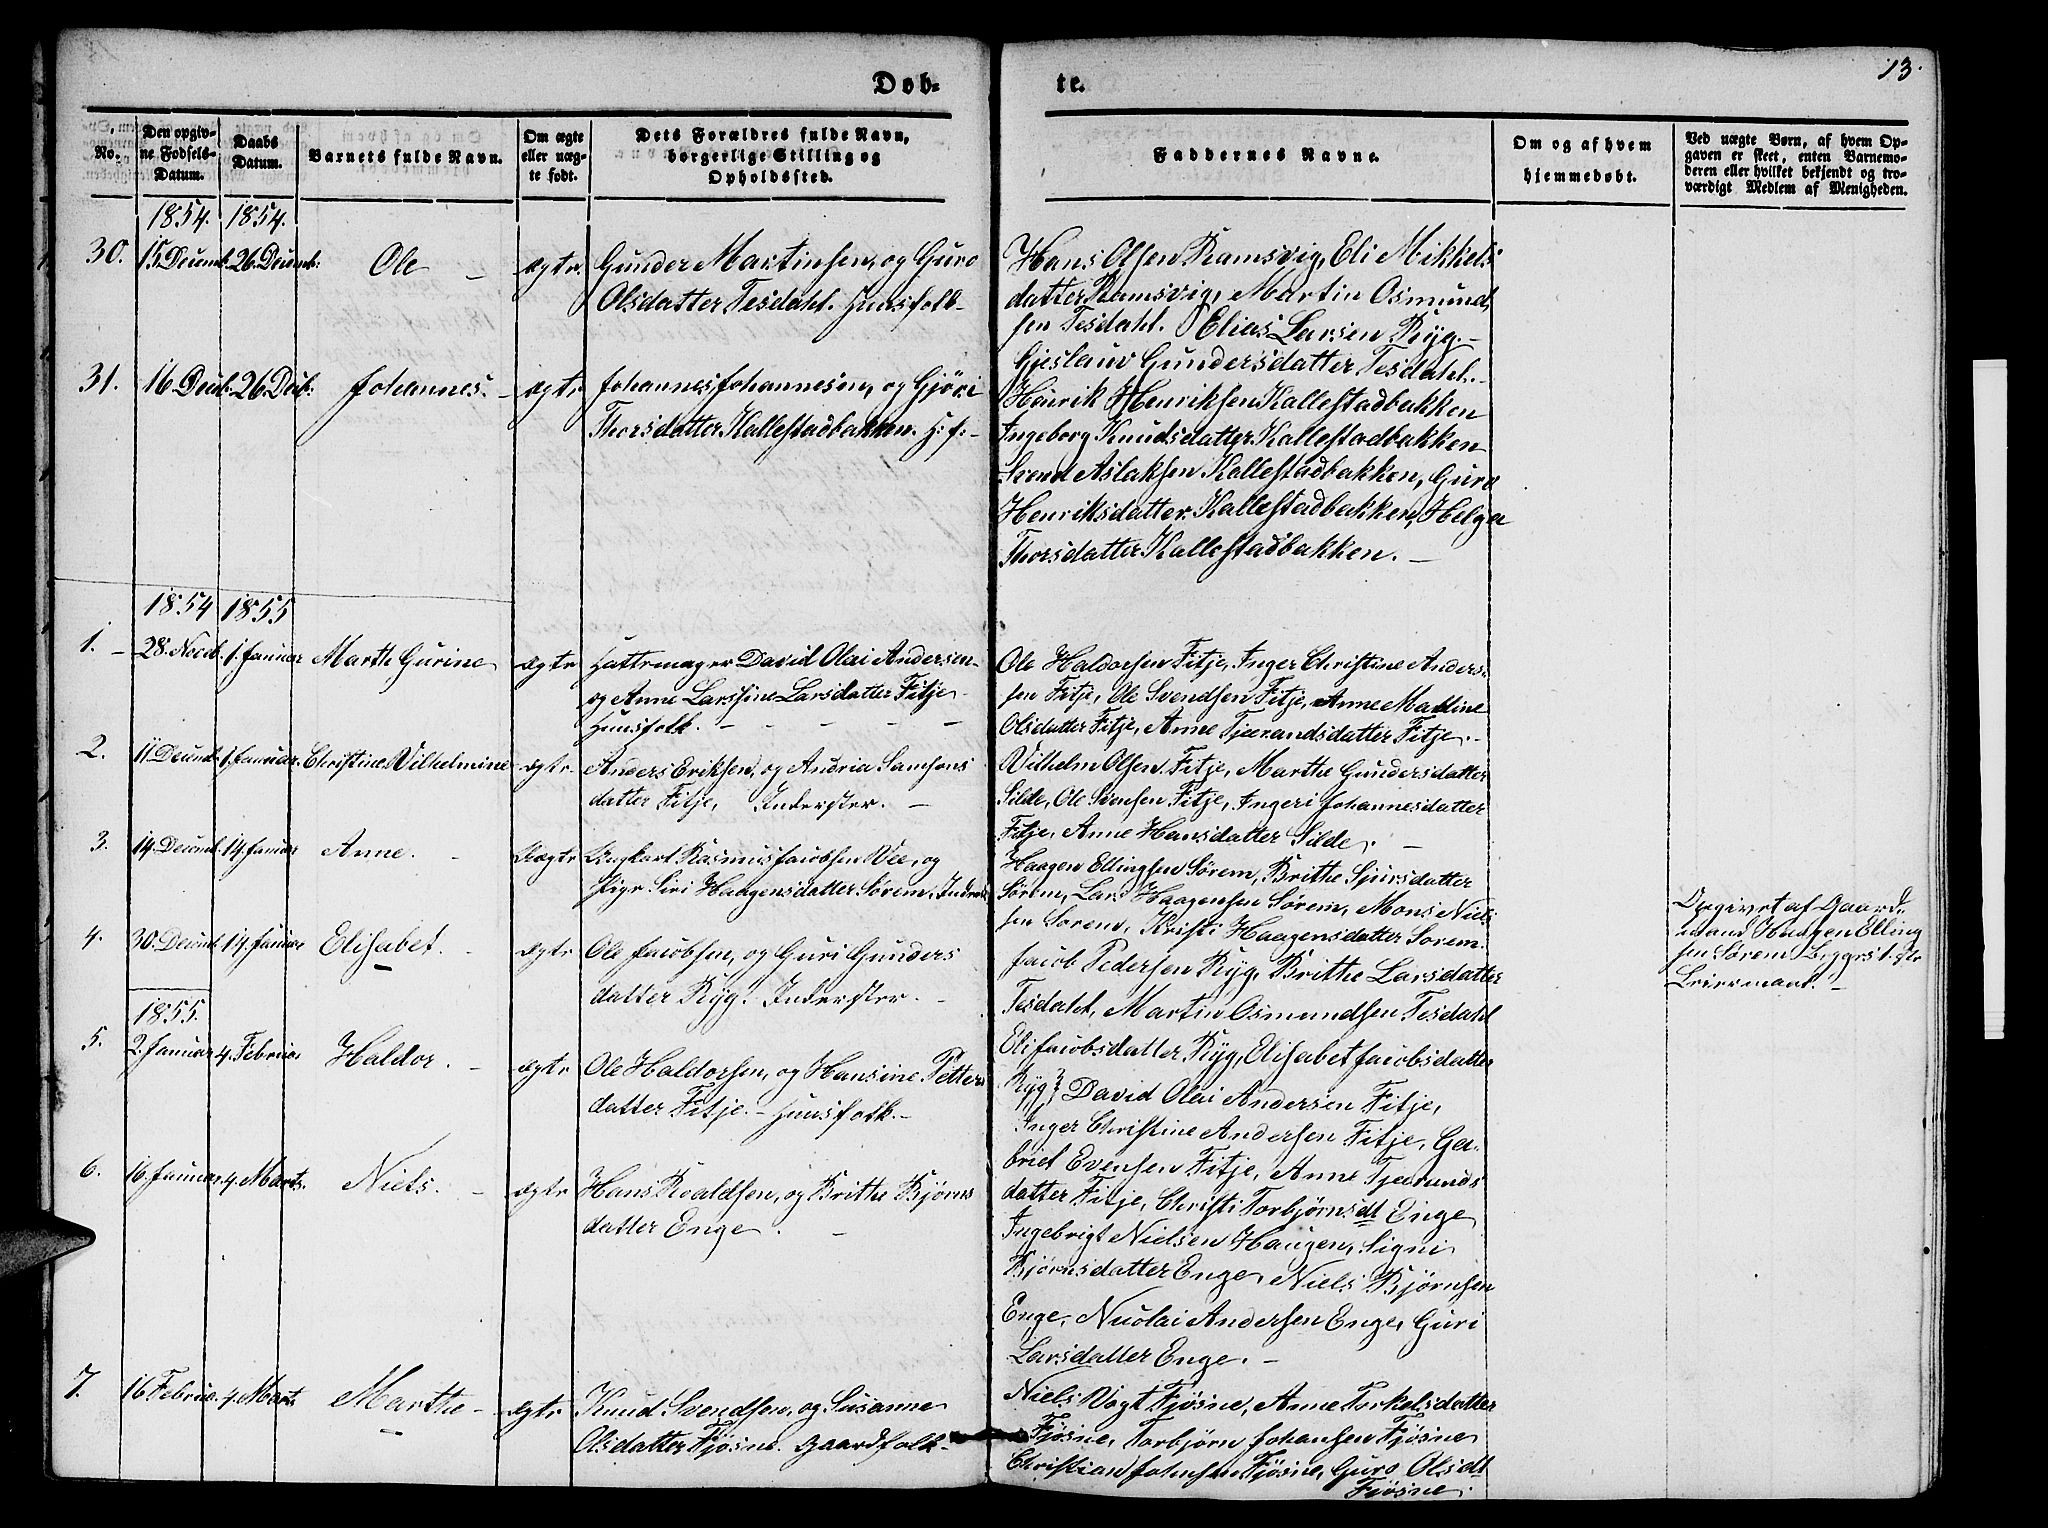 13.
Døb-
te.
No.
Den opgiv-
ne Fødsels-
Datum.
Daabs
Datum.
Barnets fulde Navn.
Om ægte
eller uæg-
te født.
Dets Forældres fulde Navn,
borgerlige Stilling og
Opholdssted.
Faddernes Navne.
Om og af hvem
hjemmedøbt.
Ved uægte Børn, af hvem Op-
gaven er skeet, enten Barnemo-
deren eller hvilket bekjendt og tro-
værdigt Medlem af Menigheden.
1854. 1854.
30. 15 Decemb. 26. Decemb: Ole - ægte.
Gunder Martinsen, og Guro
Olsdatter Tesdahl. Huusfolk-
Hans Olsen Ramsvig, Eli Mikkels
datter Ramsvig, Martin Osmund
sen Tesdahl. Elias Larsen Ryg. -
Gjeslauv Gundersdatter Tesdahl. -
31. 16 Decb. 26. Decb: Johannes. - ægte
Johannes Johannesen, og Gjøri
Thorsdatter Kallestadbakken. H: f: -
Henrik Henriksen Kallestadbakken
Ingeborg Knudsdatter Kallestadbakken
Svend Aslaksen Kallestadbakken, Guro
Henriksdatter Kallestadbakken, Helga
Thorsdatter Kallestadbakken. -
1854 1855
1. - 28. Novb. 1. Januar Marthe Gurine ægte
Hattemager David Olai Andersen
og Anne Larsine Larsdatter Fitje
Huusfolk. - - - -
Ole Haldorsen Fitje, Inger Christine Anders-
sen Fitje, Ole Svendsen Fitje, Anne Malline
Olsdatter Fitje, Anne Tjerandsdatter Fitje. -
2. 11 Decemb. 1. Januar. Christine Vilhelmine ægte
Anders Eriksen, og Andria Samsons
datter Fitje, Inderster. -
Vilhelm Olsen Fitje, Marthe Gundersdatter
Silde, Ole Svensen Fitje, Ingeri Johannesdatter
Fitje, Anne Hansdatter Silde. -
3. 14. Decemb. 14. Januar Anne. - Uægte
Ungkarl Rasmus Jacobsen Vee, og
Pige Siri Haagensdatter Sørem. Inderst
Haagen Ellingsen Sørem, Brithe Sjursdatter
Sørem, Lars Haagensen Sørem, Mons Niel-
sen Sørem, Kristi Haagensdatter Sorem.
Opgivet af Gaard-
mand Haagen Elling
sen Sørem
Leiermaal. -
4. 30. Decemb. 14. Januar Elisabet. - ægte
Ole Jacobsen, og Guri Gunders
datter Ryg. Inderster. -
Jacob Pedersen Ryg, Brithe Larsdatter
Tesdahl, Martin Osmundsen Tesdahl
Eli Jacobsdatter Ryg, Elisabet Jacobsdatter
Ryg}
1855.
5. 2. Januar 4. Februar Haldor. - ægte
Ole Haldorsen, og Hansine Petters
datter Fitje. - Huusfolk. -
David Olai Andersen Fitje,
Inger Christine Andersen Fitje, Ga-
briel Evensen Fitje, Anne Tjerands
datter Fitje, Christi Torbjørnsdt Enge
6. 16. Januar 4. Marts. Niels. - ægte
Hans Roaldsen, og Brithe Bjørns
datter Enge. -
Ingebrigt Nielsen Haugen, Signi
Bjørnsdatter Enge, Niels Bjørnsen
Enge, Nicolai Andersen Enge, Guri
Larsdatter Enge. -
7. 16 Februa. 4. Mart. Marthe - ægte
Knud Svendsen, og Susanne
Olsdatter Fjøsne. Gaardfolk-
Niels Vogt Fjøsne, Anne Torkelsdatter
Fjøsne, Torbjørn Johansen Fjøsne
Christian Johnsen Fjøsne, Guro Olsdt
Fjøsne.